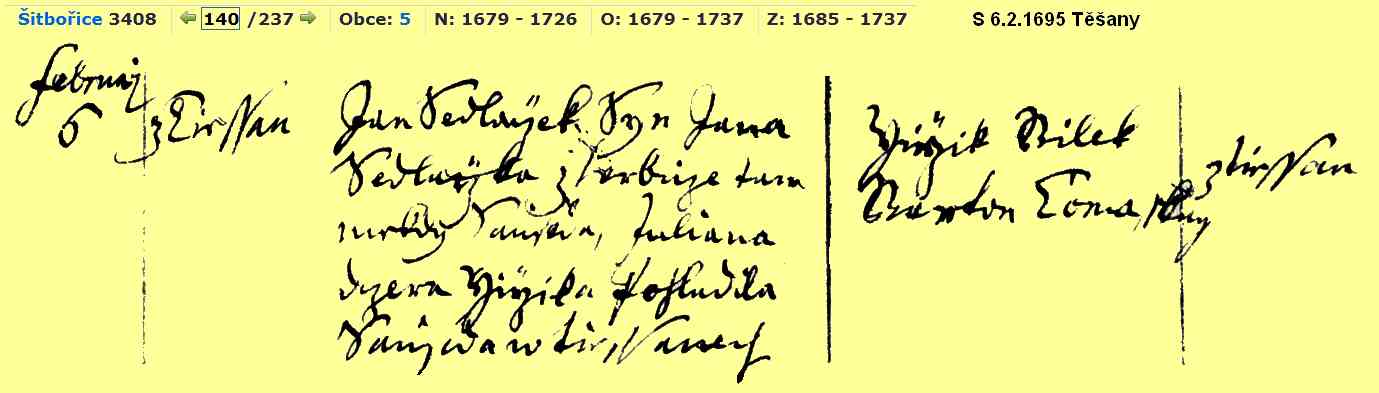 Šitbořice 3408 140 /237 Obce: 5 N: 1679 - 1726 O: 1679 - 1737 Z: 1685 - 1737 S 6.2.1695 Těšany
februarij
6
z Tiessan
Jan Sedlaýek Syn Jana
Sedlaýka z tam
Sauseda, Juliana
dzera Girzika Pohludka
Sauseda w tiessanech
Girzik Bilek
Marton Toma
z tiessan